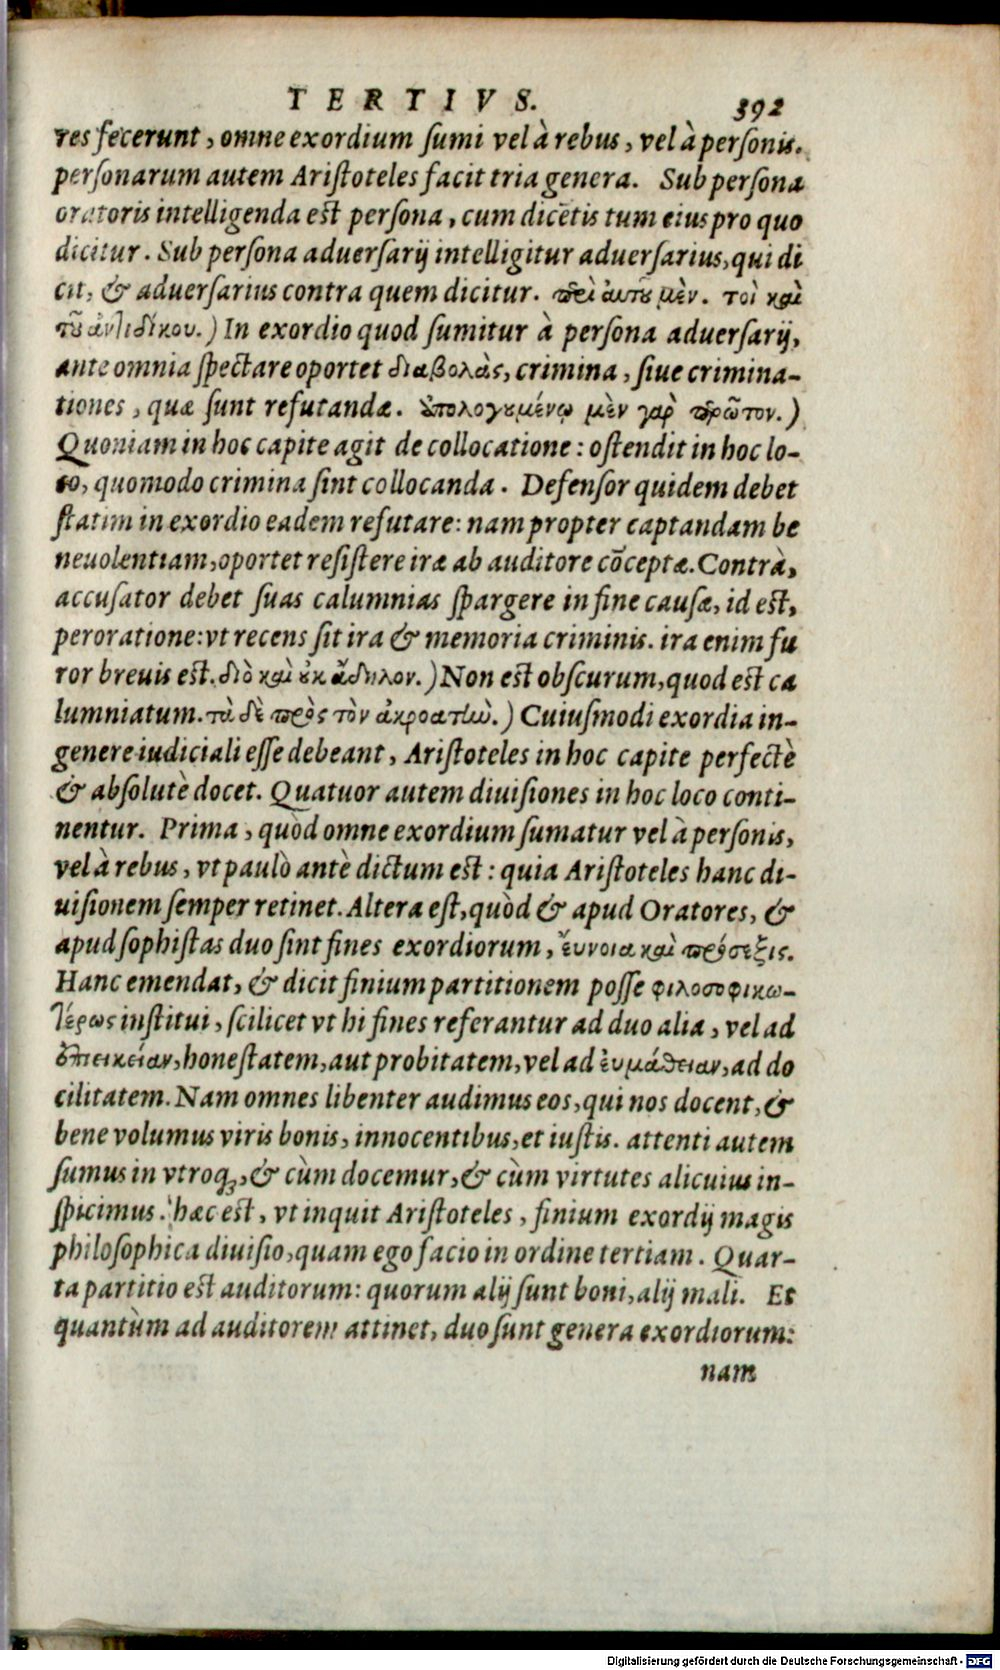 TERTIVS. 392
res fecerunt, omne exordium sumi vel à rebus, vel à personis.
personarum autem Aristoteles facit tria genera. Sub persona
oratoris intelligenda est persona, cum dicẽtis tum eius pro quo
dicitur. Sub persona aduersarij intelligitur aduersarius, qui di
cit, & aduersarius contra quem dicitur. περὶ αὐτοῦ μὲν. τοὶ καὶ
τοῦ ἀντιδίκου.) In exordio quod sumitur à persona aduersarij,
ante omnia spectare oportet διαβολὰς, crimina, siue crimina-
tiones, quæ sunt refutandæ. ἀπολογουμένῳ μὲν γὰρ πρῶτον.)
Quoniam in hoc capite agit de collocatione: ostendit in hoc lo-
co, quomodo crimina sint collocanda. Defensor quidem debet
statim in exordio eadem refutare: nam propter captandam be
neuolentiam, oportet resistere iræ ab auditore cõceptæ. Contrà,
accusator debet suas calumnias spargere in fine causæ, id est,
peroratione: vt recens sit ira & memoria criminis. ira enim fu
ror breuis est. διὸ καὶ οὐκ ἄδηλον.) Non est obscurum, quod est ca
lumniatum. τὰ δὲ πρὸς τὸν ἀκροατὴν.) Cuiusmodi exordia in-
genere iudiciali esse debeant, Aristoteles in hoc capite perfectè
& absolutè docet. Quatuor autem diuisiones in hoc loco conti-
nentur. Prima, quòd omne exordium sumatur vel à personis,
vel à rebus, vt paulò antè dictum est: quia Aristoteles hanc di-
uisionem semper retinet. Altera est, quòd & apud Oratores, &
apud sophistas duo sint fines exordiorum, ἔυνοια καὶ πρόσεξις.
Hanc emendat, & dicit finium partitionem posse φιλοσοφικω-
τέρως institui, scilicet vt hi fines referantur ad duo alia, vel ad
ἐπιεικείαν, honestatem, aut probitatem, vel ad ἐυμάθειαν, ad do
cilitatem. Nam omnes libenter audimus eos, qui nos docent, &
bene volumus viris bonis, innocentibus, et iustis. attenti autem
sumus in vtroq;, & cùm docemur, & cùm virtutes alicuius in-
spicimus. hæc est, vt inquit Aristoteles, finium exordij magis
philosophica diuisio, quam ego facio in ordine tertiam. Quar-
ta partitio est auditorum: quorum alij sunt boni, alij mali. Et
quantùm ad auditorem attinet, duo sunt genera exordiorum:
nam
Digitalisierung gefördert durch die Deutsche Forschungsgemeinschaft - DFG